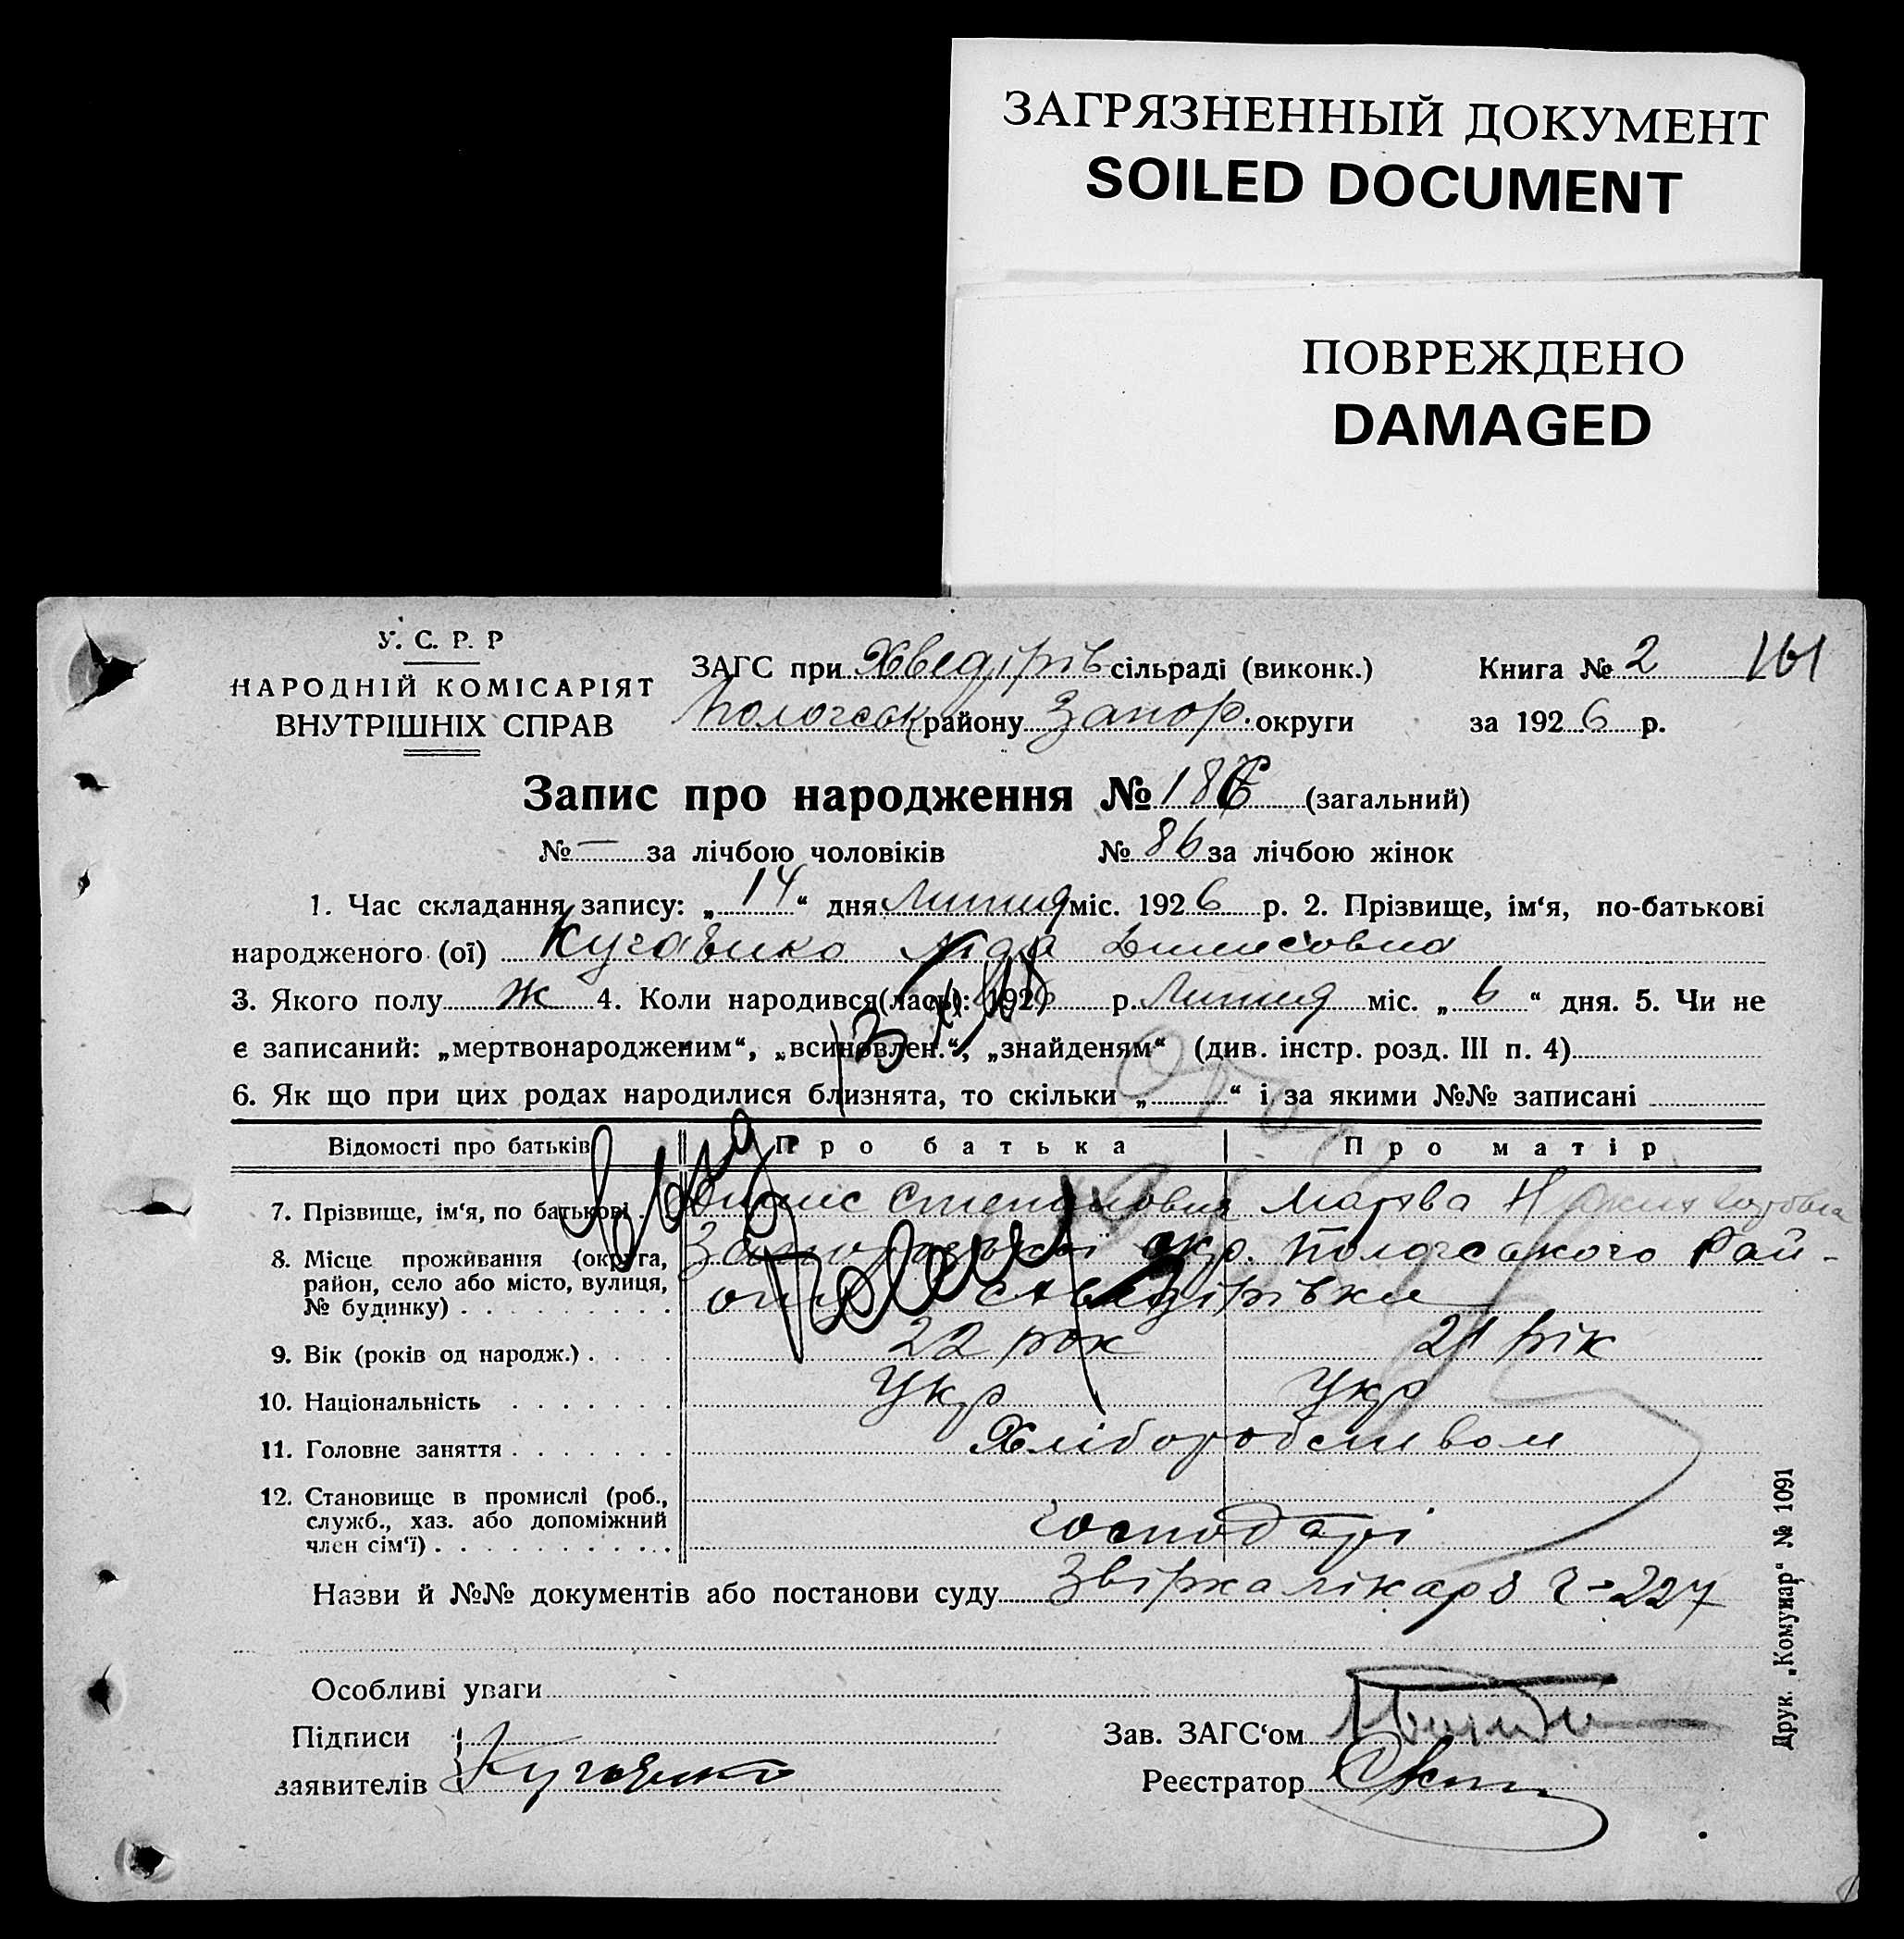 ЗАГРЯЗНЕННЫЙ ДОКУМЕНТ
SOILED DOCUMENT
ПОВРЕЖДЕНО
DAMAGED
У. С. Р. Р
НАРОДНІЙ КОМІСАРІЯТ
ВНУТРІШНІХ СПРАВ
ЗАГС при Хведірів сільраді (виконк.)
Пологськ району Запор. округи
Книга № 2 161
за 1926 р.
Запис про народження № 18 (загальний)
№ — за лічбою чоловіків № 86 за лічбою жінок
1. Час складання запису: „14“ дня Липня міс. 1926 р. 2. Прізвище, ім‘я, по-батькові
народженого (ої) Ліда
3. Якого полу Ж 4. Коли народився(лась): 192 р. Липня міс. „6“ дня. 5. Чи не
є записаний: „мертвонародженим“, „всиновлен.“, „знайденям“ (див. інстр. розд. III п. 4)
6. Як що при цих родах народилися близнята, то скільки „ “ і за якими №№ записані
Відомості про батьків Про батька Про матір
7. Прізвище, ім‘я, по батькові Степанович
8. Місце проживання (округа, район, село або місто, вулиця, № будинку) Запорізької окр. Пологського Рай-
ону Хведірівки
9. Вік (років од народж.) 22 рок 21 рік
10. Національність Укр Укр
11. Головне заняття Хліборобством
12. Становище в промислі (роб., служб., хаз. або допоміжний член сім‘ї) господарі
Назви й №№ документів або постанови суду лікаря 227
Особливі уваги
Підписи
заявителів
Зав. ЗАГС‘ом
Реєстратор
Друк. „Комунар“ № 1091